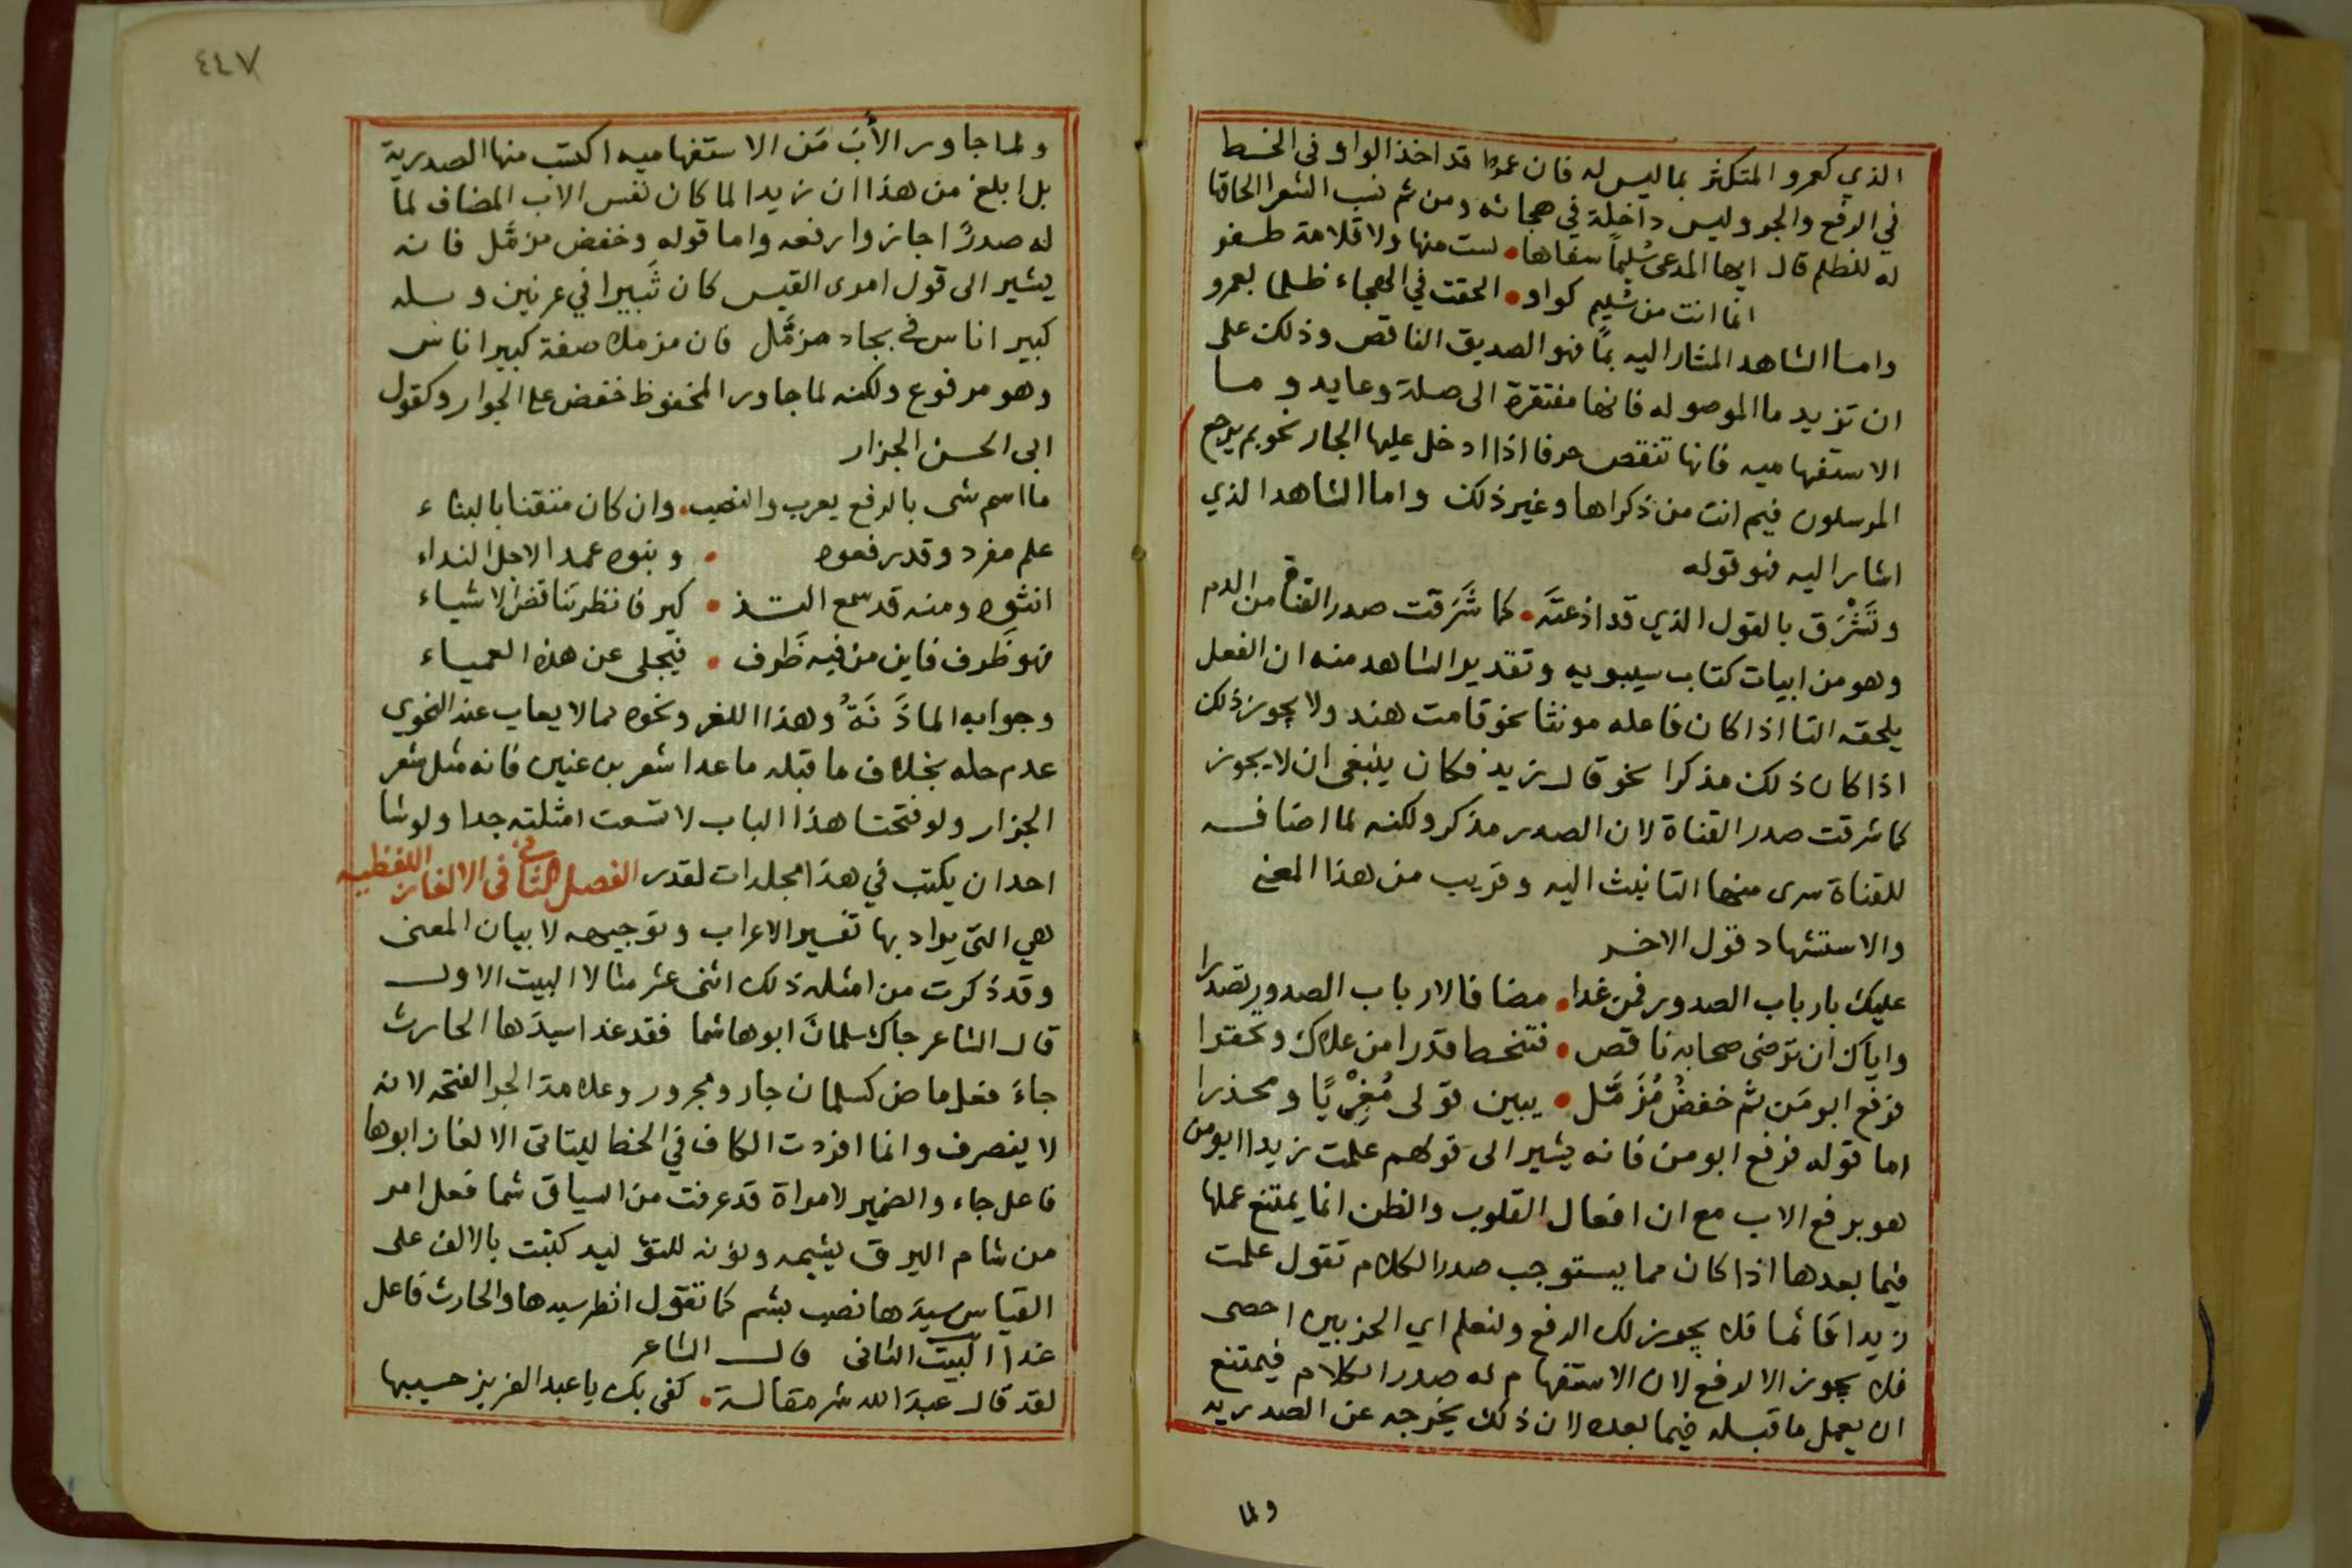 الذي كعمرو المتكثر بما ليس له فان عمروا قد اخذ الواو في الخط
في الرفع والجر وليس داخلة في هجائه ومن ثم نسب الشعرا الحاقها
له للظلم قال ايها المدعى سُليماً سفاها • لست منها ولا قلامة ظفر
انما انت من سليم كواو • الحقت في الهجاء ظلما بعمرو
واما الشاهد المشار اليه بما فهو الصديق الناقص وذلك على
ان تزيد ما الموصوله فانها مفتقرة الى صلة وعايد وما
الاستفهاميه فانها تنقص حرفا اذا ادخل عليها الجار نحو بم يرجع
المرسلون فيم انت من ذكراها وغير ذلك واما الشاهد الذي
اشار اليه فهو قوله
وتَشْرَق بالقول الذي قد اذعتَه • كما شَرَقت صدر القناة من الدم
وهو من ابيات كتاب سيبويه وتقدير الشاهد منه ان الفعل
يلحقه التا اذا كان فاعله مونثا نحو قامت هند ولا يجوز ذلك
اذا كان ذلك مذكرا نحو قال زيد فكان ينبغى ان لا يجوز
كما شرقت صدر القناة لان الصدر مذكر ولكنه لما اضافه
للقناة سرى منها التانيث اليه وقريب من هذا المعنى
والاستشهاد قول الاخر
عليك بارباب الصدور فمن غدا • مضافا لارباب الصدور تصدرا
واياك ان ترضى صحابه ناقص • فتنحط قدرا من علاك وتحقرا
فرفع ابو مَن ثم خفضُ مُزَمَّل • يبين قولى مُغْرِيًا ومحذرا
اما قوله فرفع ابو من فانه يشير الى قولهم علمت زيدا ابو من
هو برفع الاب مع ان افعال القلوب والظن انما يمتنع عملها
فيما بعدها اذا كان مما يستوجب صدر الكلام تقول علمت
زيدا قائما فلا يجوز لك الرفع ولنعلم اي الحزبين احصى
فلا يجوز الا الرفع لان الاستفهام له صدر الكلام فيمتنع
ان يعمل ما قبله فيما بعده لان ذلك يخرجه عن الصدريه
ولما
٤٤٧
ولما جاور الأبُ مَن الاستفهاميه اكتسب منها الصدرية
بل ابلغ من هذا ان زيدا لما كان نفس الاب المضاف لما
له صدرٌ اجازوا رفعه واما قوله وخفض مزمَّل فانه
يشير الى قول امرى القيس كان ثَبيرا في عرنين وبله
كبير اناس في بجاد مزمَّل فان مزملا صفة كبير اناس
وهو مرفوع ولكنه لما جاور المخفوظ خفض على الجوار وكقول
ابى الحسن الجزار
ما اسم شى بالرفع يعرب والنصب • وان كان متقنا بالبناء
علم مفرد وقد رفعوه • وبنوه عمدا لاجل النداء
انثوه ومنه قد سمع التذ • كير فانظر تناقض الاشياء
فهو ظَرف فاين من فيه ظَرف • فيجلى عن هذه العمياء
وجوابه الماذَنَهْ وهذا اللغز ونحوه مما لا يعاب عند النحوى
عدم حله بخلاف ما قبله ما عدا شعر بن عنين فانه مثل شعر
الجزار ولو فتحنا هذا الباب لاتسعت امثلته جدا ولو شا
احد ان يكتب في هذا مجلدات لقدر الفصل الثاني في الالغاز اللفظيه
هي التى يراد بها تفسير الاعراب وتوجيهه لا بيان المعنى
وقد ذكرت من امثلة ذلك اثنى عشر مثالا البيت الاول
قال الشاعر جاك سلمانَ ابوها شما فقد غدا سيدَها الحارث
جاءَ فعل ماض كسلمان جار ومجرور وعلامة الجر الفتحه لانه
لا ينصرف وانما افردت الكاف في الخط ليتاتى الالغاز ابوها
فاعل جاء والضمير لامراة قد عرفت من السياق شما فعل امر
من شام البرق يشيمه ونونه للتوليد كتبت بالالف على
القياس سيدَها نصب بشم كما تقول انظر سيدها والحارث فاعل
غدا البيت الثانى قال الشاعر
لقد قال عبدَ الله شر مقالة • كفى بك يا عبد العزيز حسيبها